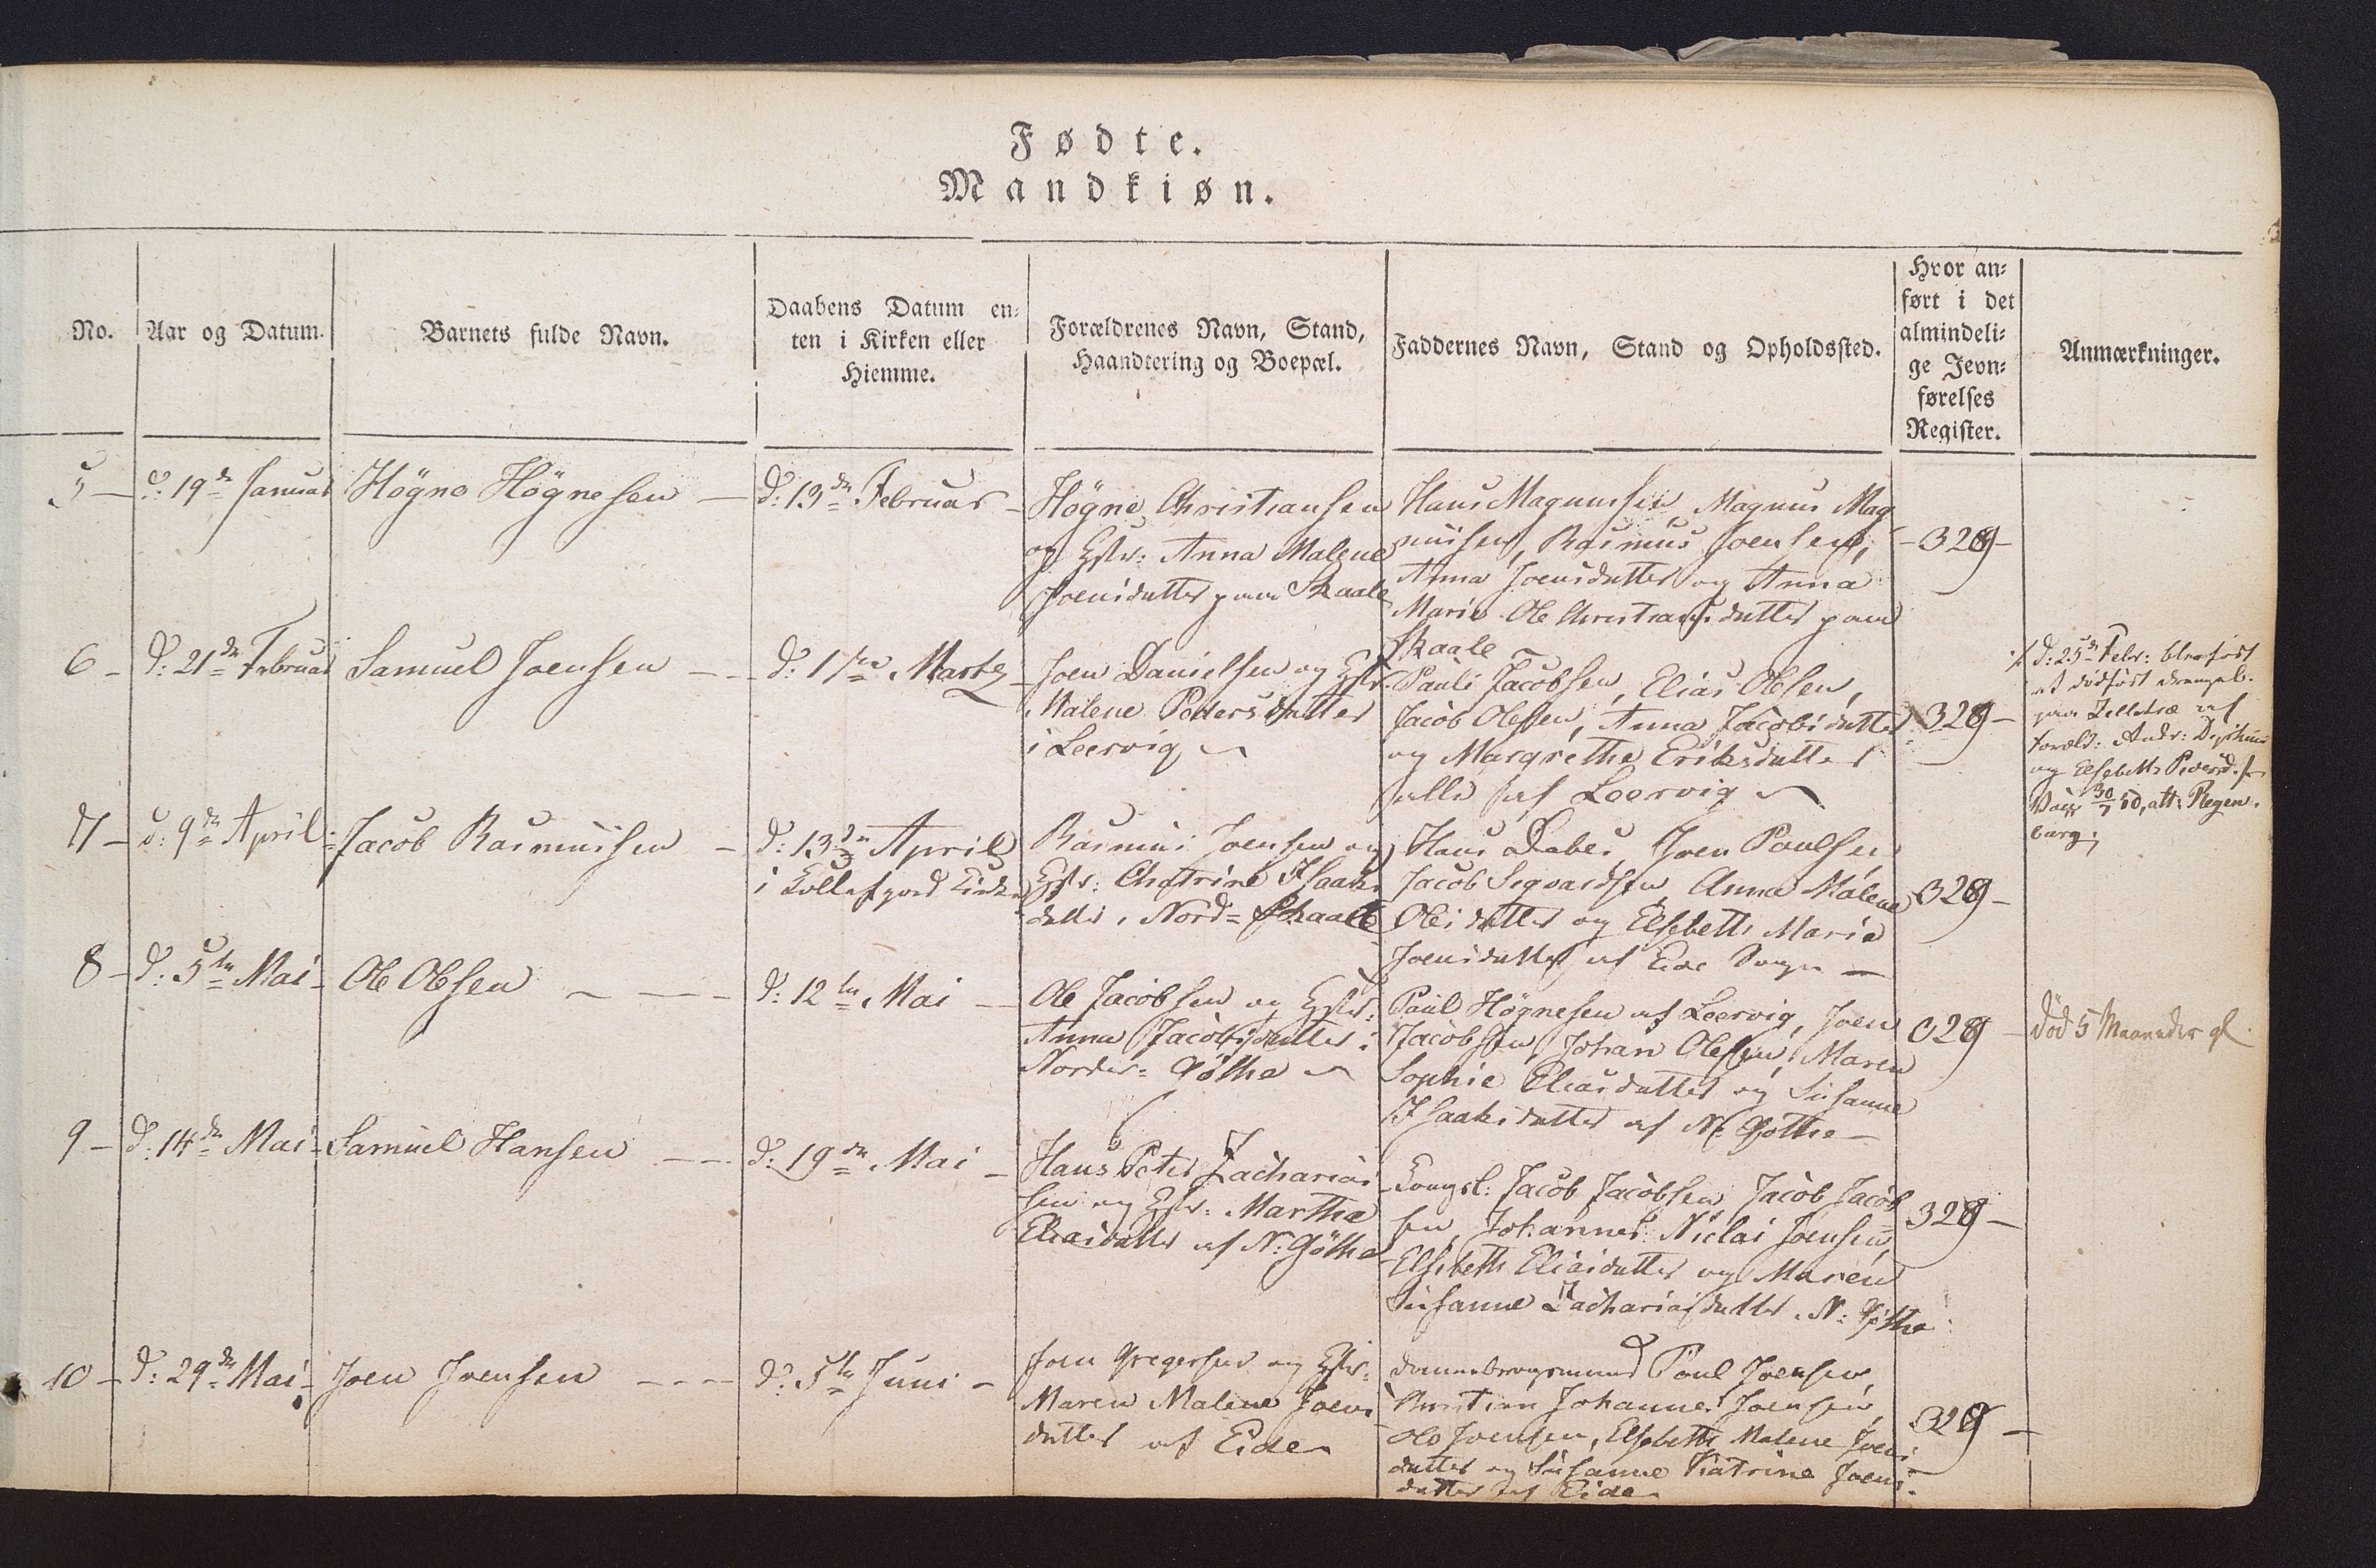 Fødte.
Mandkiøn.
No.
Aar og Datum.
Barnets fulde Navn.
Daabens Datum en-
ten i Kirken eller
Hiemme.
Forældrenes Navn, Stand,
Haandtering og Boepæl.
Faddernes Navn, Stand og Opholdssted.
Hvor an-
ført i det
almindeli-
ge Jevn-
førelses
Register.
Anmærkninger.
5 –
d: 19de Januar
Högne Högnesen –
d: 13de Februar –
Högne Christiansen
og Hstr: Anna Malene
Joensdatter paa Skaale
Hans Magnussen, Magnus Mag
nussen, Rasmus Joensen,
Anna Joensdatter og Anna
Marie Ole Christiansdatter paa
Skaale
– 329 –
6 –
d: 21de Februar
Samuel Joensen – –
d: 17de Martz –
Joen Danielsen og Hstr.
Malene Pedersdatter
i Leervig
Pauli Jacobsen, Elias Olesen,
Jacob Olesen, Anna Jacobsdatter
og Margrethe Eriksdatter
alle af Leervig
329 –
d: 25de Febr: blev født
et dödfödt drengeb.
paa Selletræ af
foreld:
og Elsebeth Pedersd.
30/7 50, att: Regen-
burg;
7 –
d: 9de April
Jacob Rasmussen –
d: 13de April
i Kollefjord Kirke
Rasmus Joensen og
Hstr: Chatrine Isaaks
datter, Nord= Skaale
Hans Dabes Joen Poulsen
Jacob Sigvardsen Anna Malene
Olesdatter og Elsebeth Maria
Joensdatter af Eide Sogn –
329 –
8 –
d: 5te Mai –
Ole Olesen – – –
d: 12te Mai –
Ole Jacobsen og Hstr:
Anna Jacobsdatter i
Norder= Göthe
Paul Högnesen af Leervig, Joen
Jacobsen, Johan Olesen, Maren
Sophie Eliasdatter og Susanne
Isaaksdatter af N: Göthe –
329 –
död 5 Maaneder gl.
9 –
d: 14de Mai –
Samuel Hansen – –
d: 19de Mai –
Hans Peter Zacharias
sen og Hstr: Martha
Eliasdatter af N: Göthe
Kongsb: Jacob Jacobsen, Jacob Jacob
sen, Johannes Niclai Joensen,
Elsebeth Eliasdatter og Maren
Susanne Zachariasdatter. N: Göthe
329 –
10 –
d: 29de Mai –
Joen Joensen – – –
d: 5te Juni –
Joen Gregersen og Hstr:
Maren Malene Joens
datter af Eide
Dannebrogsmand Poul Joensen,
Christian Johannes Joensen,
Ole Joensen, Elsebeth Malene Joens
datter og Susanne Katrine Joens-
datter af Eide
329 –